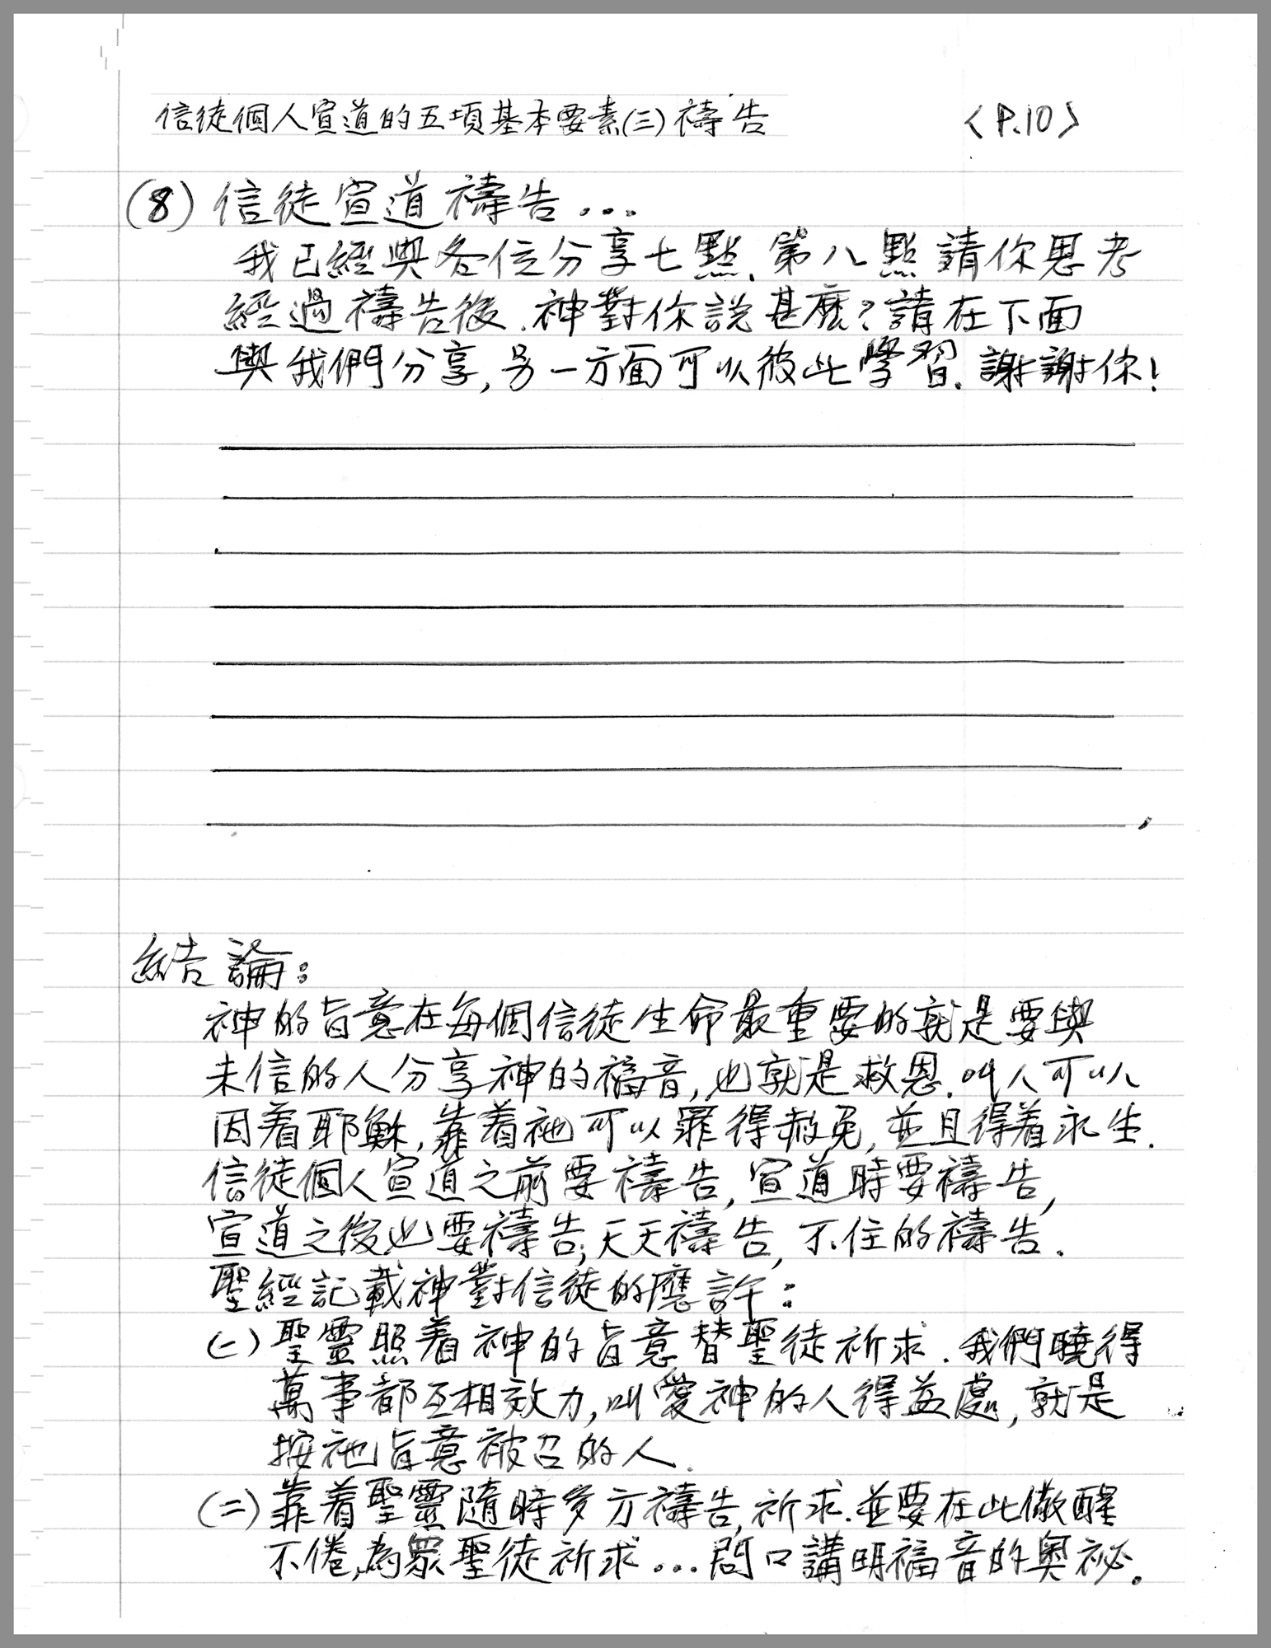 信徒個人宣道的五項基本要素(三)禱告 <P.10>
(8) 信徒宣道禱告...
我已經與各位分享七點.第八點請你思考
經過禱告後.神對你說甚麼?請在下面
與我們分享,另一方面可以彼此學習.謝謝你!
結論:
神的旨意在每個信徒生命最重要的就是要與
未信的人分享神的福音,也就是救恩.叫人可以
因着耶穌,靠着祂可以罪得赦免,並且得着永生.
信徒個人宣道之前要禱告,宣道時要禱告,
宣道之後也要禱告;天天禱告,不住的禱告.
聖經記載神對信徒的應許:
(一)聖靈照着神的旨意替聖徒祈求.我們曉得
萬事都互相效力,叫愛神的人得益處,就是
按祂旨意被召的人.
(二)靠着聖靈隨時多方禱告,祈求.並要在此儆醒
不倦,為眾聖徒祈求...開口講明福音的奧祕.